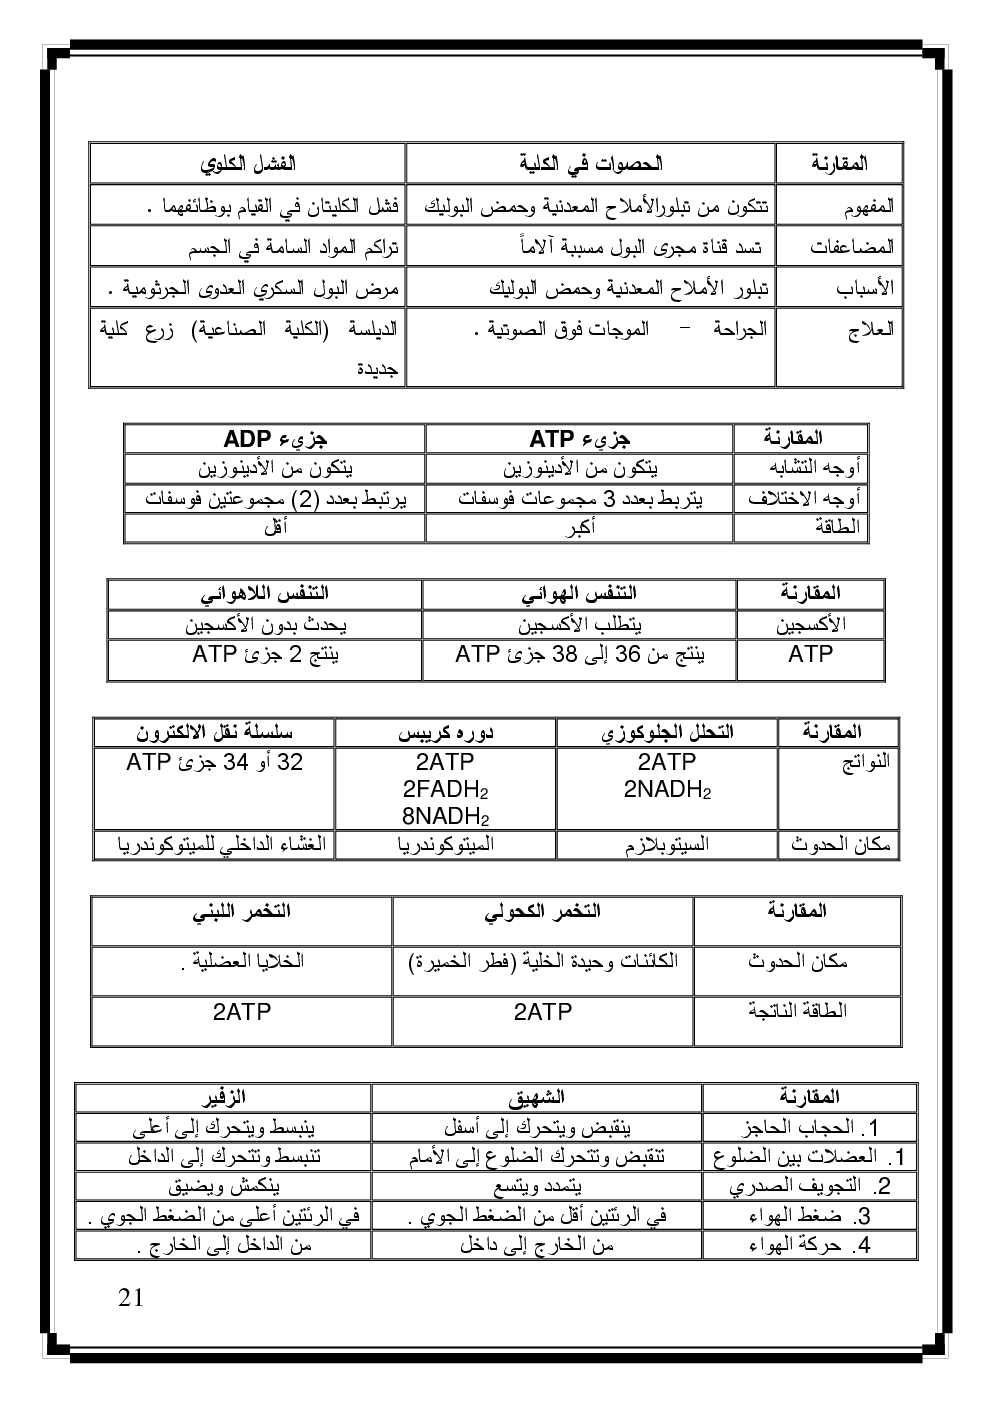 المقارنة الحصوات في الكلية الفشل الكلوي
المفهوم تتكون من تبلورالأملاح المعدنية وحمض البوليك فشل الكليتان في القيام بوظائفهما .
المضاعفات تسد قناة مجرى البول مسببة آلاماً تراكم المواد السامة في الجسم
الأسباب تبلور الأملاح المعدنية وحمض البوليك مرض البول السكري العدوى الجرثومية .
العلاج الجراحة – الموجات فوق الصوتية . الديلسة (الكلية الصناعية) زرع كلية
جديدة
المقارنة جزيء ATP جزيء ADP
أوجه التشابه يتكون من الأدينوزين يتكون من الأدينوزين
أوجه الاختلاف يتربط بعدد 3 مجموعات فوسفات يرتبط بعدد (2) مجموعتين فوسفات
الطاقة أكبر أقل
المقارنة التنفس الهوائي التنفس اللاهوائي
الأكسجين يتطلب الأكسجين يحدث بدون الأكسجين
ATP ينتج من 36 إلى 38 جزئ ATP ينتج 2 جزئ ATP
المقارنة التحلل الجلوكوزي دوره كريبس سلسلة نقل الالكترون
النواتج 2ATP 2ATP 32 أو 34 جزئ ATP
2NADH₂ 2FADH₂
8NADH₂
مكان الحدوث السيتوبلازم الميتوكوندريا الغشاء الداخلي للميتوكوندريا
المقارنة التخمر الكحولي التخمر اللبني
مكان الحدوث الكائنات وحيدة الخلية (فطر الخميرة) الخلايا العضلية .
الطاقة الناتجة 2ATP 2ATP
المقارنة الشهيق الزفير
1. الحجاب الحاجز ينقبض ويتحرك إلى أسفل ينبسط ويتحرك إلى أعلى
1. العضلات بين الضلوع تنقبض وتتحرك الضلوع إلى الأمام تنبسط وتتحرك إلى الداخل
2. التجويف الصدري يتمدد ويتسع ينكمش ويضيق
3. ضغط الهواء في الرئتين أقل من الضغط الجوي . في الرئتين أعلى من الضغط الجوي .
4. حركة الهواء من الخارج إلى داخل من الداخل إلى الخارج .
21